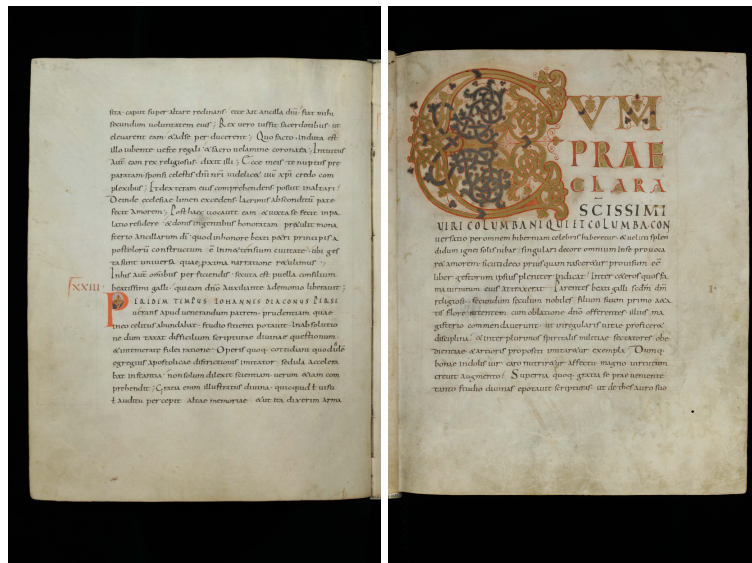 sita. caput super altare reclinans. et ait ancilla dnī. fiat mihi
secundum voluntatem eius; Rex vero iussit sacerdotibus ut
elevarent eam & adse per ducerent; Quo facto. induta est
illo iubente veste regali & sacro velamine coronata; Intuitus
autē eam rex religiosus. dixit illi; Ecce meis te nuptiis pre
paratam. sponsi celestis dnī nrī videlic& ihū xpī credo com
plexibus; Et dexteram eius comprehendens posuit in altari.
Deinde ecclesiae limen excedens. lacrimis absconditū pate
fecit amorem; Post haec vocavit eam & iuxta se fecit in pa
latio residere & donis ingentibus honoratam praetulit mona
sterio ancillarum dī. quod in honore beati p&ri principis a
postolorū constructum ē in m&tensium civitate. ubi ges
ta sunt universa quae proxima narratione retulimus;
In his autē omnibus per ficiendis. secuta est puella consilium
beatissimi galli. qui eam dnō auxiliante ademonio liberavit;
XXIII.
PER IDEM TEMPUS IOHANNES DIACONUS PERSE
verans apud venerandum patrem. prudentiam quae
in eo celitus abundabat. studio sitienti potavit. In absolutio
ne dum taxat difficilium scripturae divinae questionum.
& intemeratae fidei ratione. Operis quoq. cotidiani quod ille
egregius apostolicae districtionis imitator. sedula accelera
bat instantia. non solum dilexit scientiam. verum & iam com
prehendit; Gratia enim illustratus divina. quicquid t visu
t auditu per cepit. altae memoriae. & ut ita dixerim arma
CUM
PRAE
CLARA
SC̄ISSIMI
VIRI COLUMBANI QUI ET COLUMBA CON
versatio per omnem hiberniam celebris haberetur. & veluti splen
didum ignei solis iubar. singulari decore omnium in se provoca
r& amorem. sicuti de eo priusquam nasceretur provisum eē
liber gestorum ipsius pleniter indicat. Inter ceteros quos fa
ma virtutum eius attraxerat. Parentes beati galli scdm dm̄
religiosi. secundum seculum nobiles. filium suum primo aeta
tis flore nitentem. cum oblatione dnō offerentes. illius ma
gisterio commendaverunt. ut in regularis vitae profecer&
disciplina. & inter plurimos spiritalis militiae sectatores. obe
dientiae & artioris propositi imitar&ur exempla. Dumq.
bonae indolis vir. caro nutrir&ur affectu. magno virtutum
crevit augmento; Superna quoq. gratia se praeveniente
tanto studio divinas epotavit scripturas. ut de thesauro suo